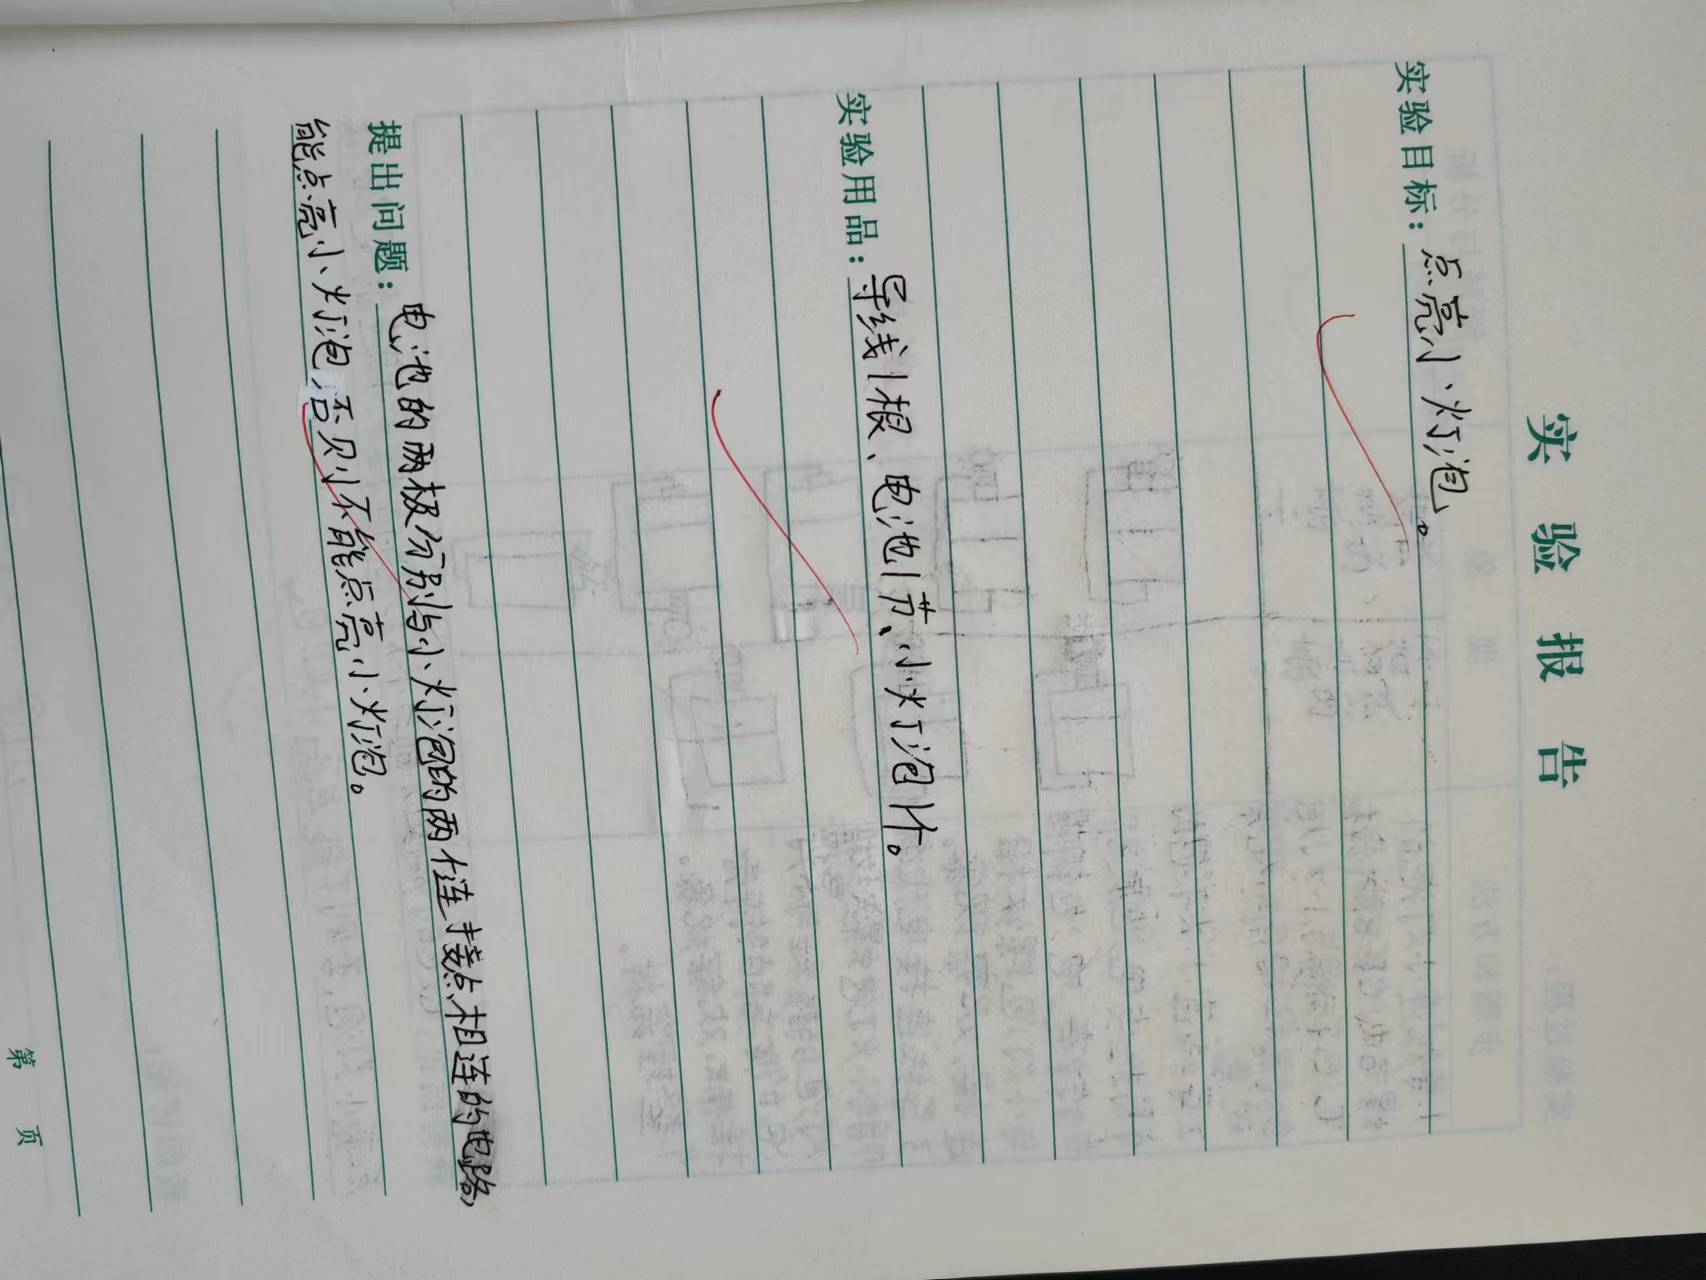 实验报告
实验目标：点亮小灯泡。
实验用品：导线1根、电池1节、小灯泡1个。
提出问题：电池的两极分别与小灯泡的两个连接点相连的电路，
能点亮小灯泡，否则不能点亮小灯泡。
第 页